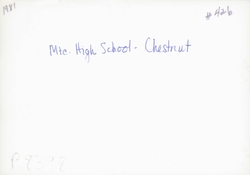 1981
#426
Mtc. High School - Chestnut